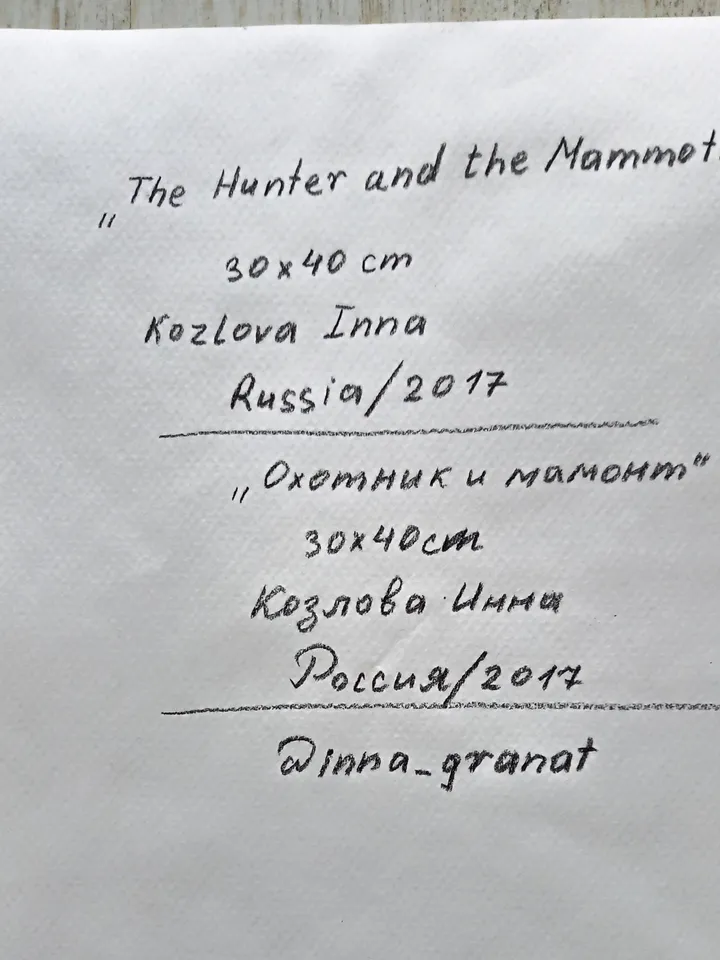 „The Hunter and the Mammot
30x40 cm
Kozlova Inna
Russia/2017
„Охотник и мамонт“
30x40cm
Козлова Инна
Россия/2017
@inna_granat